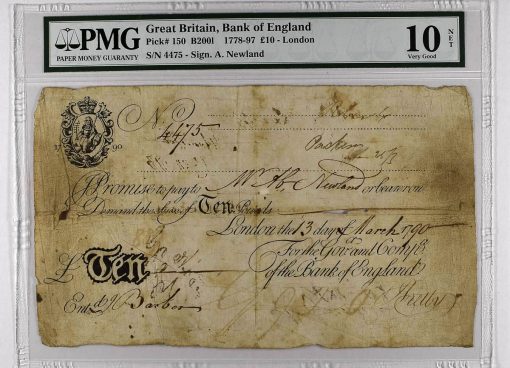 PMG
PAPER MONEY GUARANTY
Great Britain, Bank of England
Pick# 150 B200l 1778-97 £10 - London
S/N 4475 - Sign. A. Newland
10 NET
Very Good
No. 4475
17 90
I Promise to pay to Mr. Ab. Newland or bearer on
Demand the Sum of Ten Pounds
London the 13 day of March 1790
For the Govr. and Compa.
of the Bank of England
£ Ten
Entd. Barber